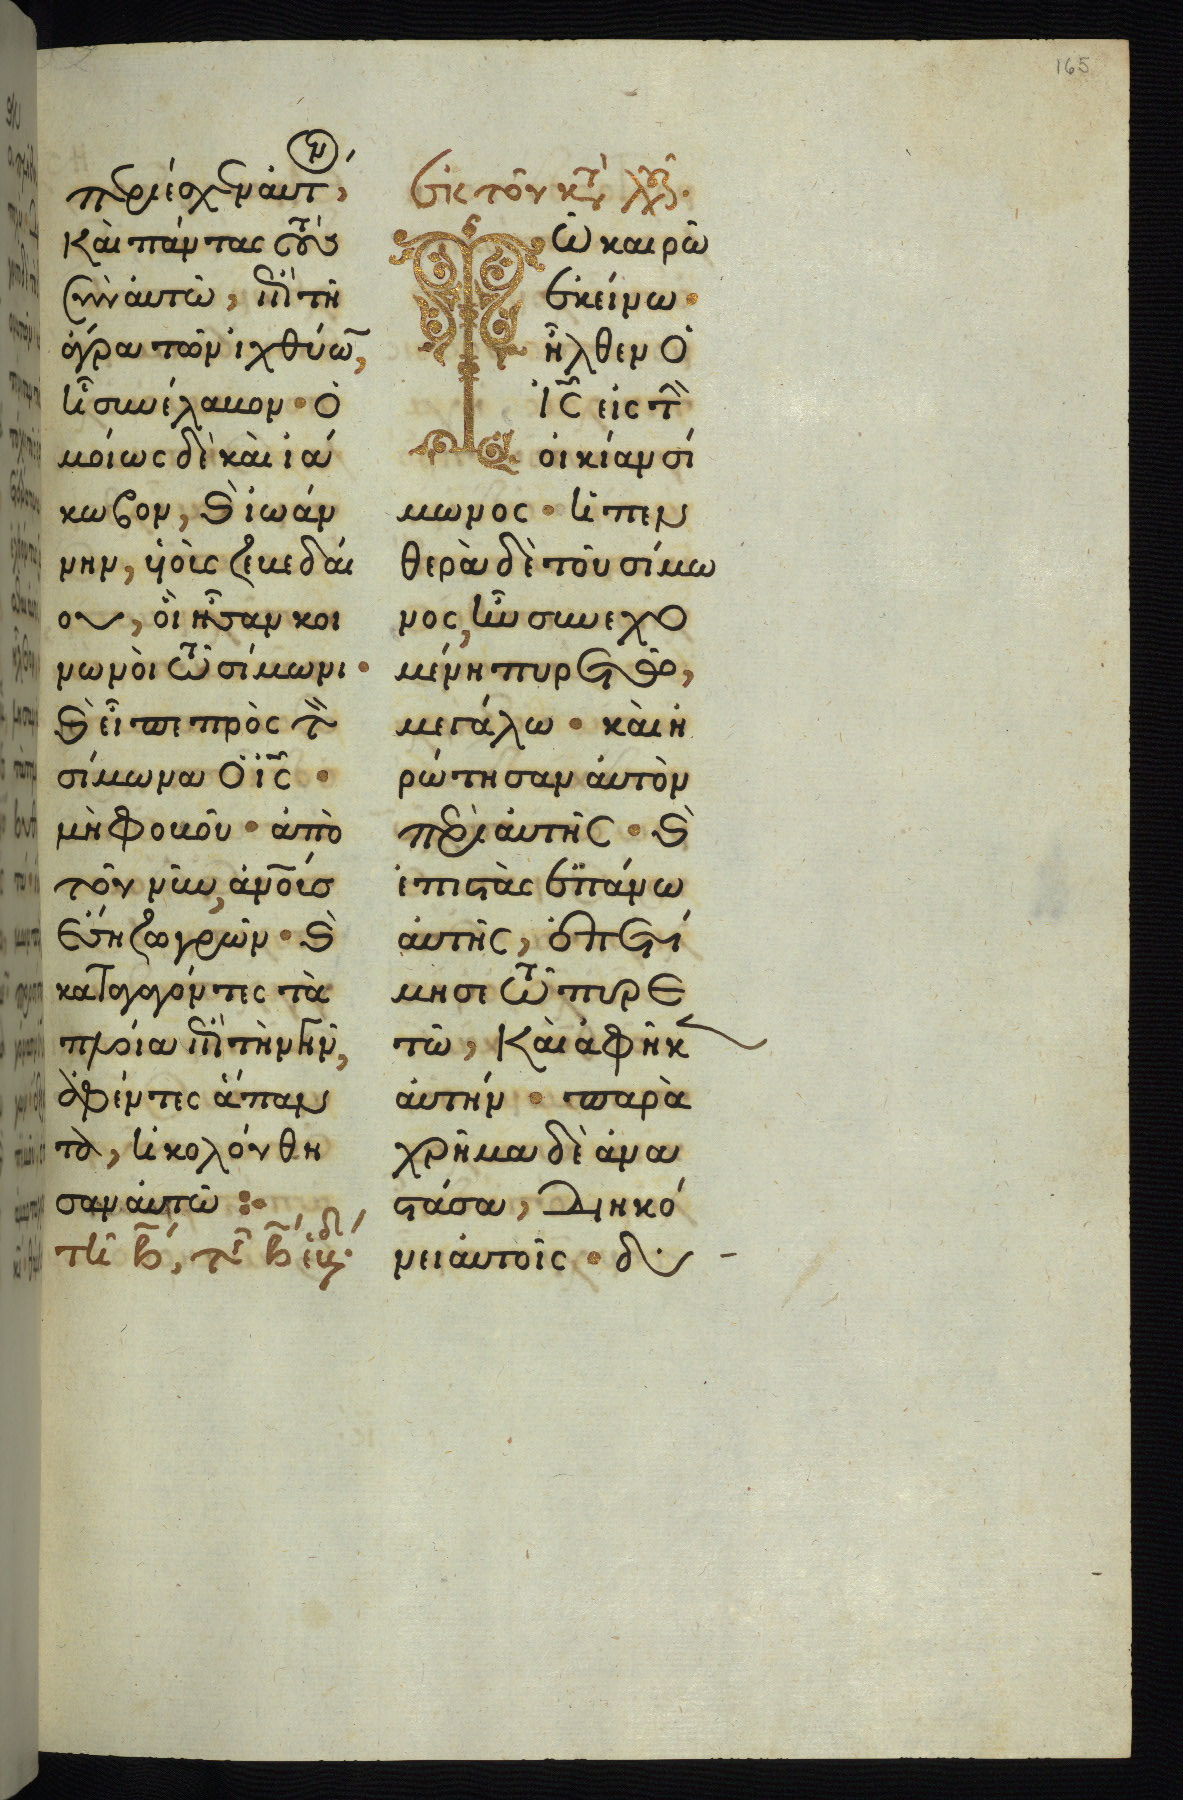 165
περιέσχεν αὐτ(ὸν),
Καὶ πάντας τοὺς
σὺν ἀυτῶ, ἐπὶ τῆ
ἄγρα τῶν ἰχθύω̅,
ἧ συνέλαβον · ὁ
μοίως δὲ καὶ ἰά
κωβον, καὶ ἰωάν
νην, ὑιοὺς ζεβεδαί
ου, οἳ ἦσαν κοι
νωνοὶ τῶ σίμωνι ·
καὶ εἶπε πρὸς τὸν
σίμωνα ὁ ἰ̅ς̅ ·
μὴ φοβοῦ · ἀπὸ
τοῦ νῦν, ἀν̅ους
ἔση ζωγρῶν · καὶ
καταγαγόντες τὰ
πλοῖα ἐπὶ τὴν γῆν,
ἀφέντες ἅπαν
τα, ἠκολούθη
σαν ἀυτῶ :·
ἐκ τοῦ κτ λουκ ·
Τῶ καιρῶ
ἐκείνω ·
ἦλθεν ὁ
ἰ̅ς̅ εἰς τὴν
οἰκίαν σί
μωνος · ἡ πεν
θερὰ δὲ τοῦ σίμω
νος, ἦν συνεχο
μένη πυρετῶ,
μεγάλω · καὶ ἠ
ρώτησαν ἀυτὸν
περὶ ἀυτῆς · καὶ
ἐπιστὰς ἐπάνω
ἀυτῆς, ἐπετί
μησε τῶ πυρε
τῶ, Καὶ ἀφῆκ
ἀυτήν · παρὰ
χρῆμα δὲ ἀνα
στάσα, διηκό
νει ἀυτοῖς · δυ